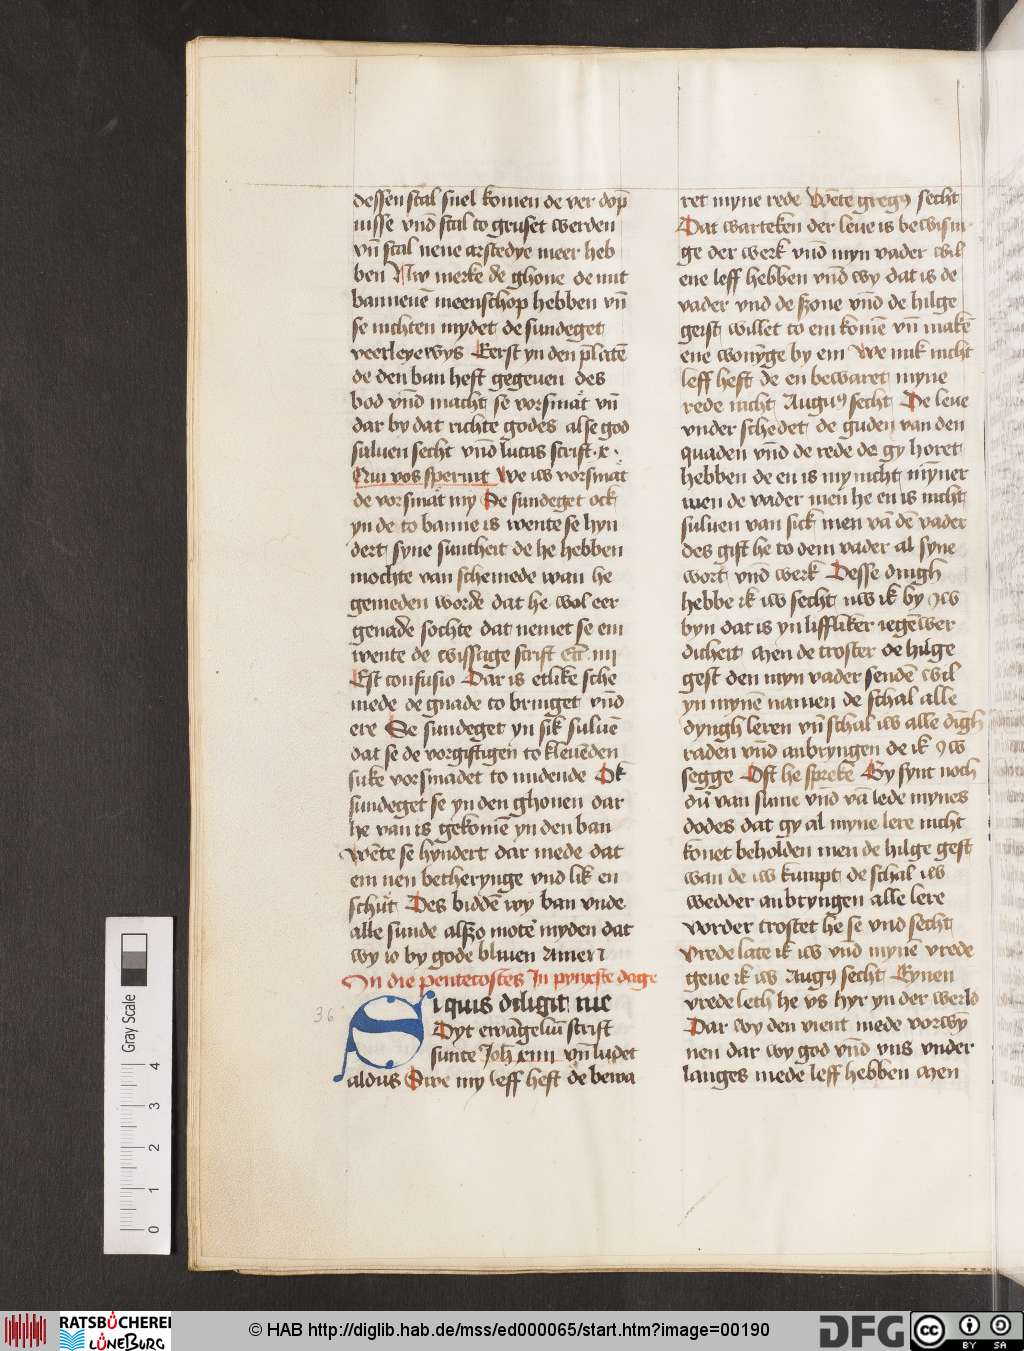 dessen scal snel komen de ver dop̄
nisse vnd̄ scal to gruset werden
vn̄ scal nene arstedye meer heb
ben Nw merke de ghone de mit
bannenē meenschop hebben vn̄
se nichten mydet de sundeget
veerleye wys Eerst yn den platē
de den ban heft gegeuen des
bod vnd̄ macht se vorsmāt vn̄
dar by dat richte godes alse god
suluen secht vnd̄ lucas scrift x
Qui vos spernit We iw vorsmāt
de vorsmāt my De sundeget ock
yn de to banne is wente se hyn
dert syne suntheit de he hebben
mochte van schemede wan he
gemeden worde dat he wol eer
genade sochte dat nemet se em
wente de wissage scrift Ecc̄ iiij
Est confusio Dar is etlike sche
mede de gnade to bringet vnd̄
ere De sundeget yn sik suluē
dat se de vorgiftigen to kleuēden
suke vorsmadet to midende Ok
sundeget se yn den ghonen dar
he van is gekomē yn den ban
Wēte se hyndert dar mede dat
em nen betherynge vnd lik en
schūt Des biddē wy ban vnde
alle sunde alszo motē myden dat
wy io by gode bliuen Amen
In die pentecostes In pynxste dage
36
Si quis diligit me
Dyt ewāgeliū scrift
sunte Joh xiiii vn̄ ludet
aldus Swe my leff heft de bewa
ret myne rede Wēte gregꝰ secht
Dat warteken der leue is bewisin
ge der werk vnd̄ myn vader wil
ene leff hebben vnd̄ wy dat is de
vader vnd de szone vnd̄ de hilge
geist willet to em komē vn̄ makē
ene wonȳge by em We mik nicht
leff heft de en bewaret myne
rede nicht Augꝰ secht De leue
vnder schedet de guden van den
quaden vnd̄ de rede de gy horet
hebben de en is my nicht mȳner
men de vader men he en is nicht
suluen van sick men vā dē vader
des gift he to dem vader al syne
wort vnd̄ werk Desse dingh
hebbe ik iw secht nw ik by ꝯw
byn dat is yn lifflikēr iegēwer
dicheit Men de troster de hilge
gest den myn vader sendē wil
yn mynē namen de schal alle
dyngh leren vn̄ schal iw alle dīgh
raden vnd̄ anbryngen de ik ꝯw
segge Oft he sprekē Gy synt noch
dū van sinne vnd̄ vā lede mynes
dodes dat gy al myne lere nicht
konet beholden men de hilge gest
wan de iw kumpt de schal iw
wedder anbryngen alle lere
vorder trostet he se vnd secht
vrede late ik iw vnd̄ mynē vrede
geue ik iw Augꝰ secht Eynen
vrede leth he vs hyr yn der werld
Dar wy den vient mede vorwȳ
nen dar wy god vnd̄ vns vnder
langes mede leff hebben Men
Gray Scale
4
3
2
1
0
RATSBÜCHEREI
LÜNEBURG
© HAB http://diglib.hab.de/mss/ed000065/start.htm?image=00190
DFG
cc
BY
SA